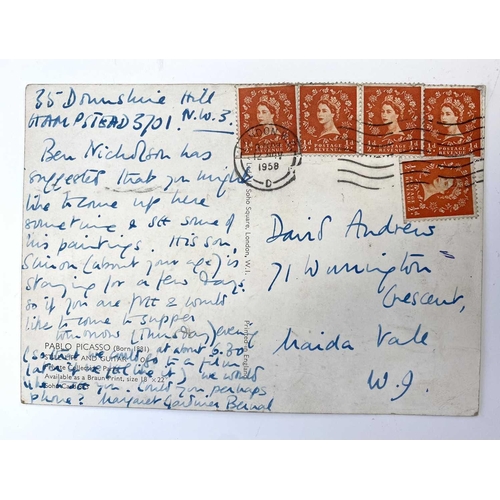 35 Downshire Hill
HAMPSTEAD 3701. N.W.3.
Ben Nicholson has
suggested that you might
like to come up here
sometime & see some of
his paintings. His son,
Simon (about your age) is
staying for a few days.
so if you are free & would
like to come to supper
tomorrow (Thursday) evening
PABLO PICASSO (Born 1881)
at about 6.30
STILL LIFE AND GUITAR
to a film
Available as a Braun Print, size 18 × 22
we would
you perhaps
phone? Margaret Gardiner Bernal
Soho Square, London, W.1.
Printed in England
LONDON
1958
D
POSTAGE
David Andrews
71 Warrington
Crescent,
Maida Vale
W.9.